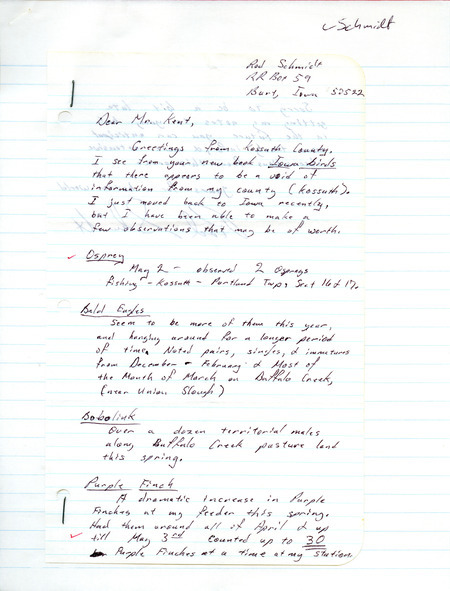 Schmidt
Rod Schmidt
RR Box 59
Burt, Iowa 50522
Dear Mr. Kent,
Greetings from Kossuth County.
I see from your new book Iowa Birds
that there appears to be a void of
information from my county (Kossuth).
I just moved back to Iowa recently,
but I have been able to make a
few observations that may be of worth.
Osprey
May 2 - observed 2 Ospreys
fishing - Kossuth - Portland Twp, Sect 16 & 17.
Bald Eagles
Seem to be more of them this year,
and hanging around for a longer period
of time. Noted pairs, singles, & immatures
from December - February & Most of
the Month of March on Buffalo Creek,
(near Union Slough)
Bobolink
Over a dozen territorial males
along Buffalo Creek pasture land
this spring.
Purple Finch
A dramatic increase in Purple
Finches at my feeder this spring.
Had them around all of April & up
till May 3rd counted up to 30
Purple Finches at a time at my station.